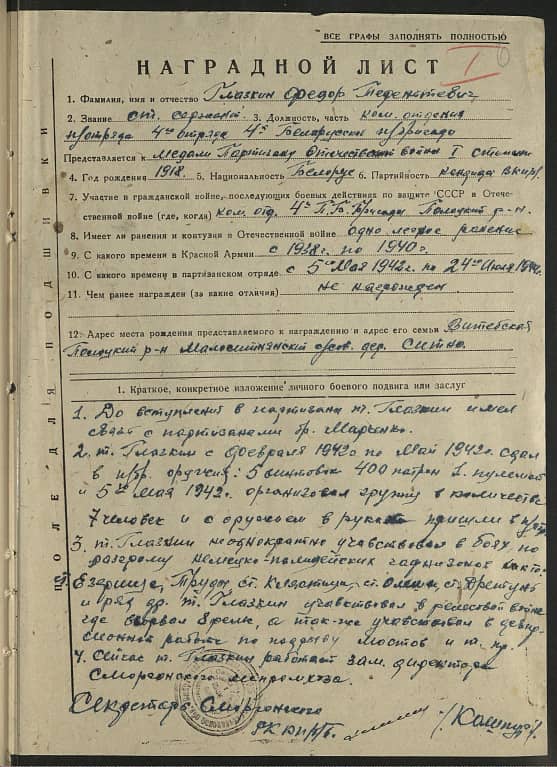 ВСЕ ГРАФЫ ЗАПОЛНЯТЬ ПОЛНОСТЬЮ
НАГРАДНОЙ ЛИСТ
1. Фамилия, имя и отчество Глазкин Федор
2. Звание ст. сержант 3. Должность, часть ком. отделения
4го отряда 4й Белорусской п/бригады
Представляется к медали Партизану Отечественной войны I степени
4. Год рождения 1918. 5. Национальность Белорус 6. Партийность Кандидат ВКП/б/
7. Участие в гражданской войне, последующих боевых действиях по защите СССР в Отече-
ственной войне (где, когда) ком. отд. 4й П.Б. Бригады Полоцкий р-н.
8. Имеет ли ранения и контузии в Отечественной войне одно легкое ранение
9. С какого времени в Красной Армии с 1938г. по 1940г.
10. С какого времени в партизанском отряде с 5го Мая 1942г. по 24го Июня 1944г.
11. Чем ранее награжден (за какие отличия) не награжден
12. Адрес места рождения представляемого к награждению и адрес его семьи Витебская
Полоцкий р-н Малоситнянский с/сов. дер. Ситно.
1. Краткое, конкретное изложение личного боевого подвига или заслуг
1. До вступления в партизаны т. Глазкин имел
связь с партизанами бр. Марченко.
2. т. Глазкин с Февраля 1942г по Май 1942г. сдал
в п/бр. оружия: 5 винтовок 400 патрон 1. пулемет
и 5го Мая 1942г. организовал группу в количестве
7 человек и с оружием в руках пришли в
3. т. Глазкин неоднократно участвовал в боях по
разгрому немецко-полицейских гарнизонов как то:
Езерище, Труды, ст. Клястица, ст. ст. Дретунь
и ряд др. т. Глазкин участвовал в рельсовой войне
где взорвал рельс, а так-же участвовал в дивер-
сионной работе по подрыву мостов и т. пр.
4. Сейчас т. Глазкин работает зам. директора
Сморгонского леспромхоза.
Секретарь Сморгонского
РК ВКП/б/.
ПОЛЕ ДЛЯ ПОДШИВКИ